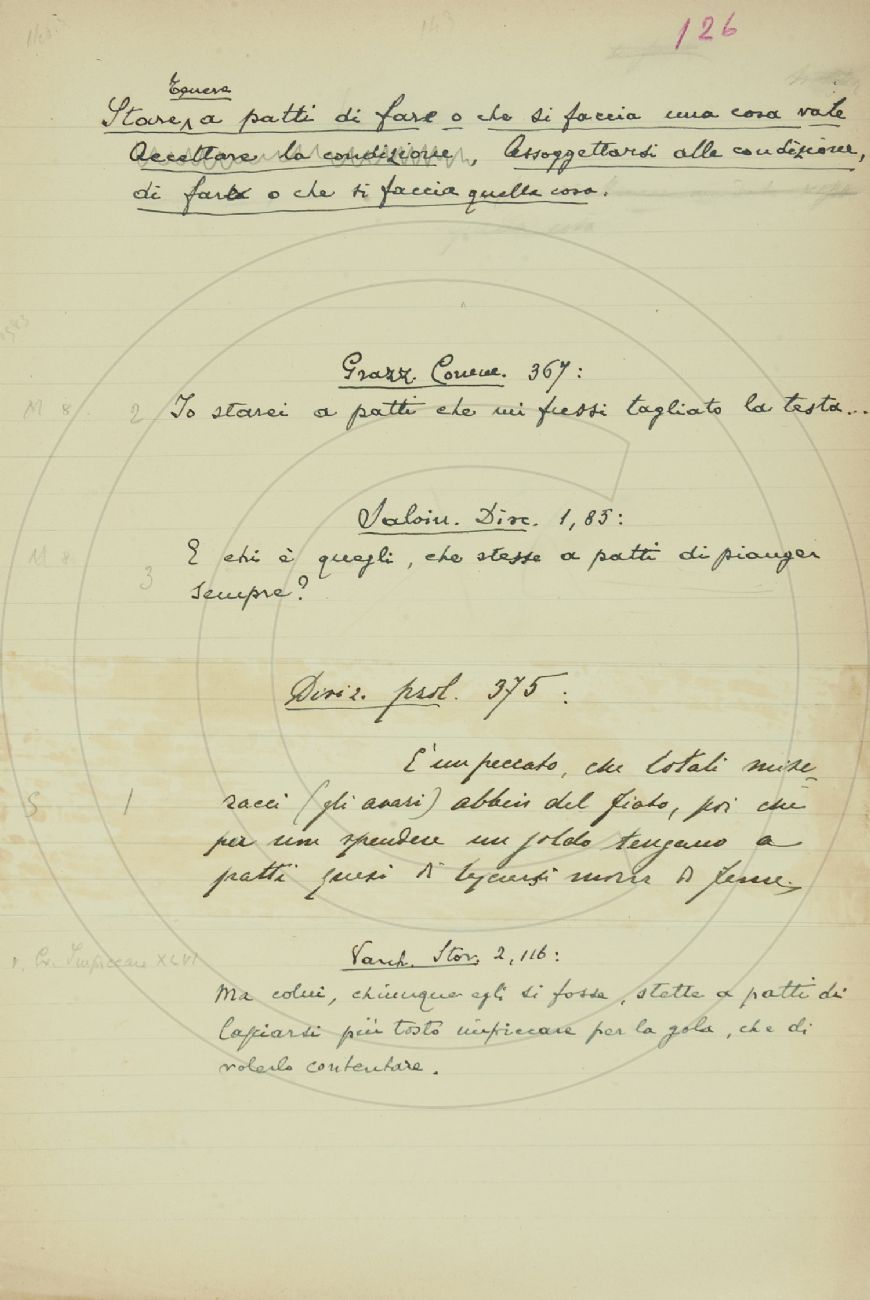 126
Tenere
Stare, a patti di fare o che si faccia una cosa vale
Accettare la condizione, Assoggettarsi alle condizione,
di fare o che si faccia quella cosa.
Grazz. Comm. 367:
M 8 2 Io starei a patti che mi fussi tagliato la testa...
Salvin. Disc. 1, 85:
M 8 E chi è quegli, che stesse a patti di pianger
3 sempre?
Diviz. prol. 375:
E' un peccato, che cotali mise-
S 1 racci (gli avari) abbin del fiato, poi che
per non spendere un soldo tengano a
patti quasi di lasciarsi morir di fame.
Varch. Stor. 2, 116:
v. Cr. Impiccare XLVI
Ma colui, chiunque egli si fosse, stette a patti di
lasciarsi più tosto impiccare per la gola, che di
volerlo contentare.